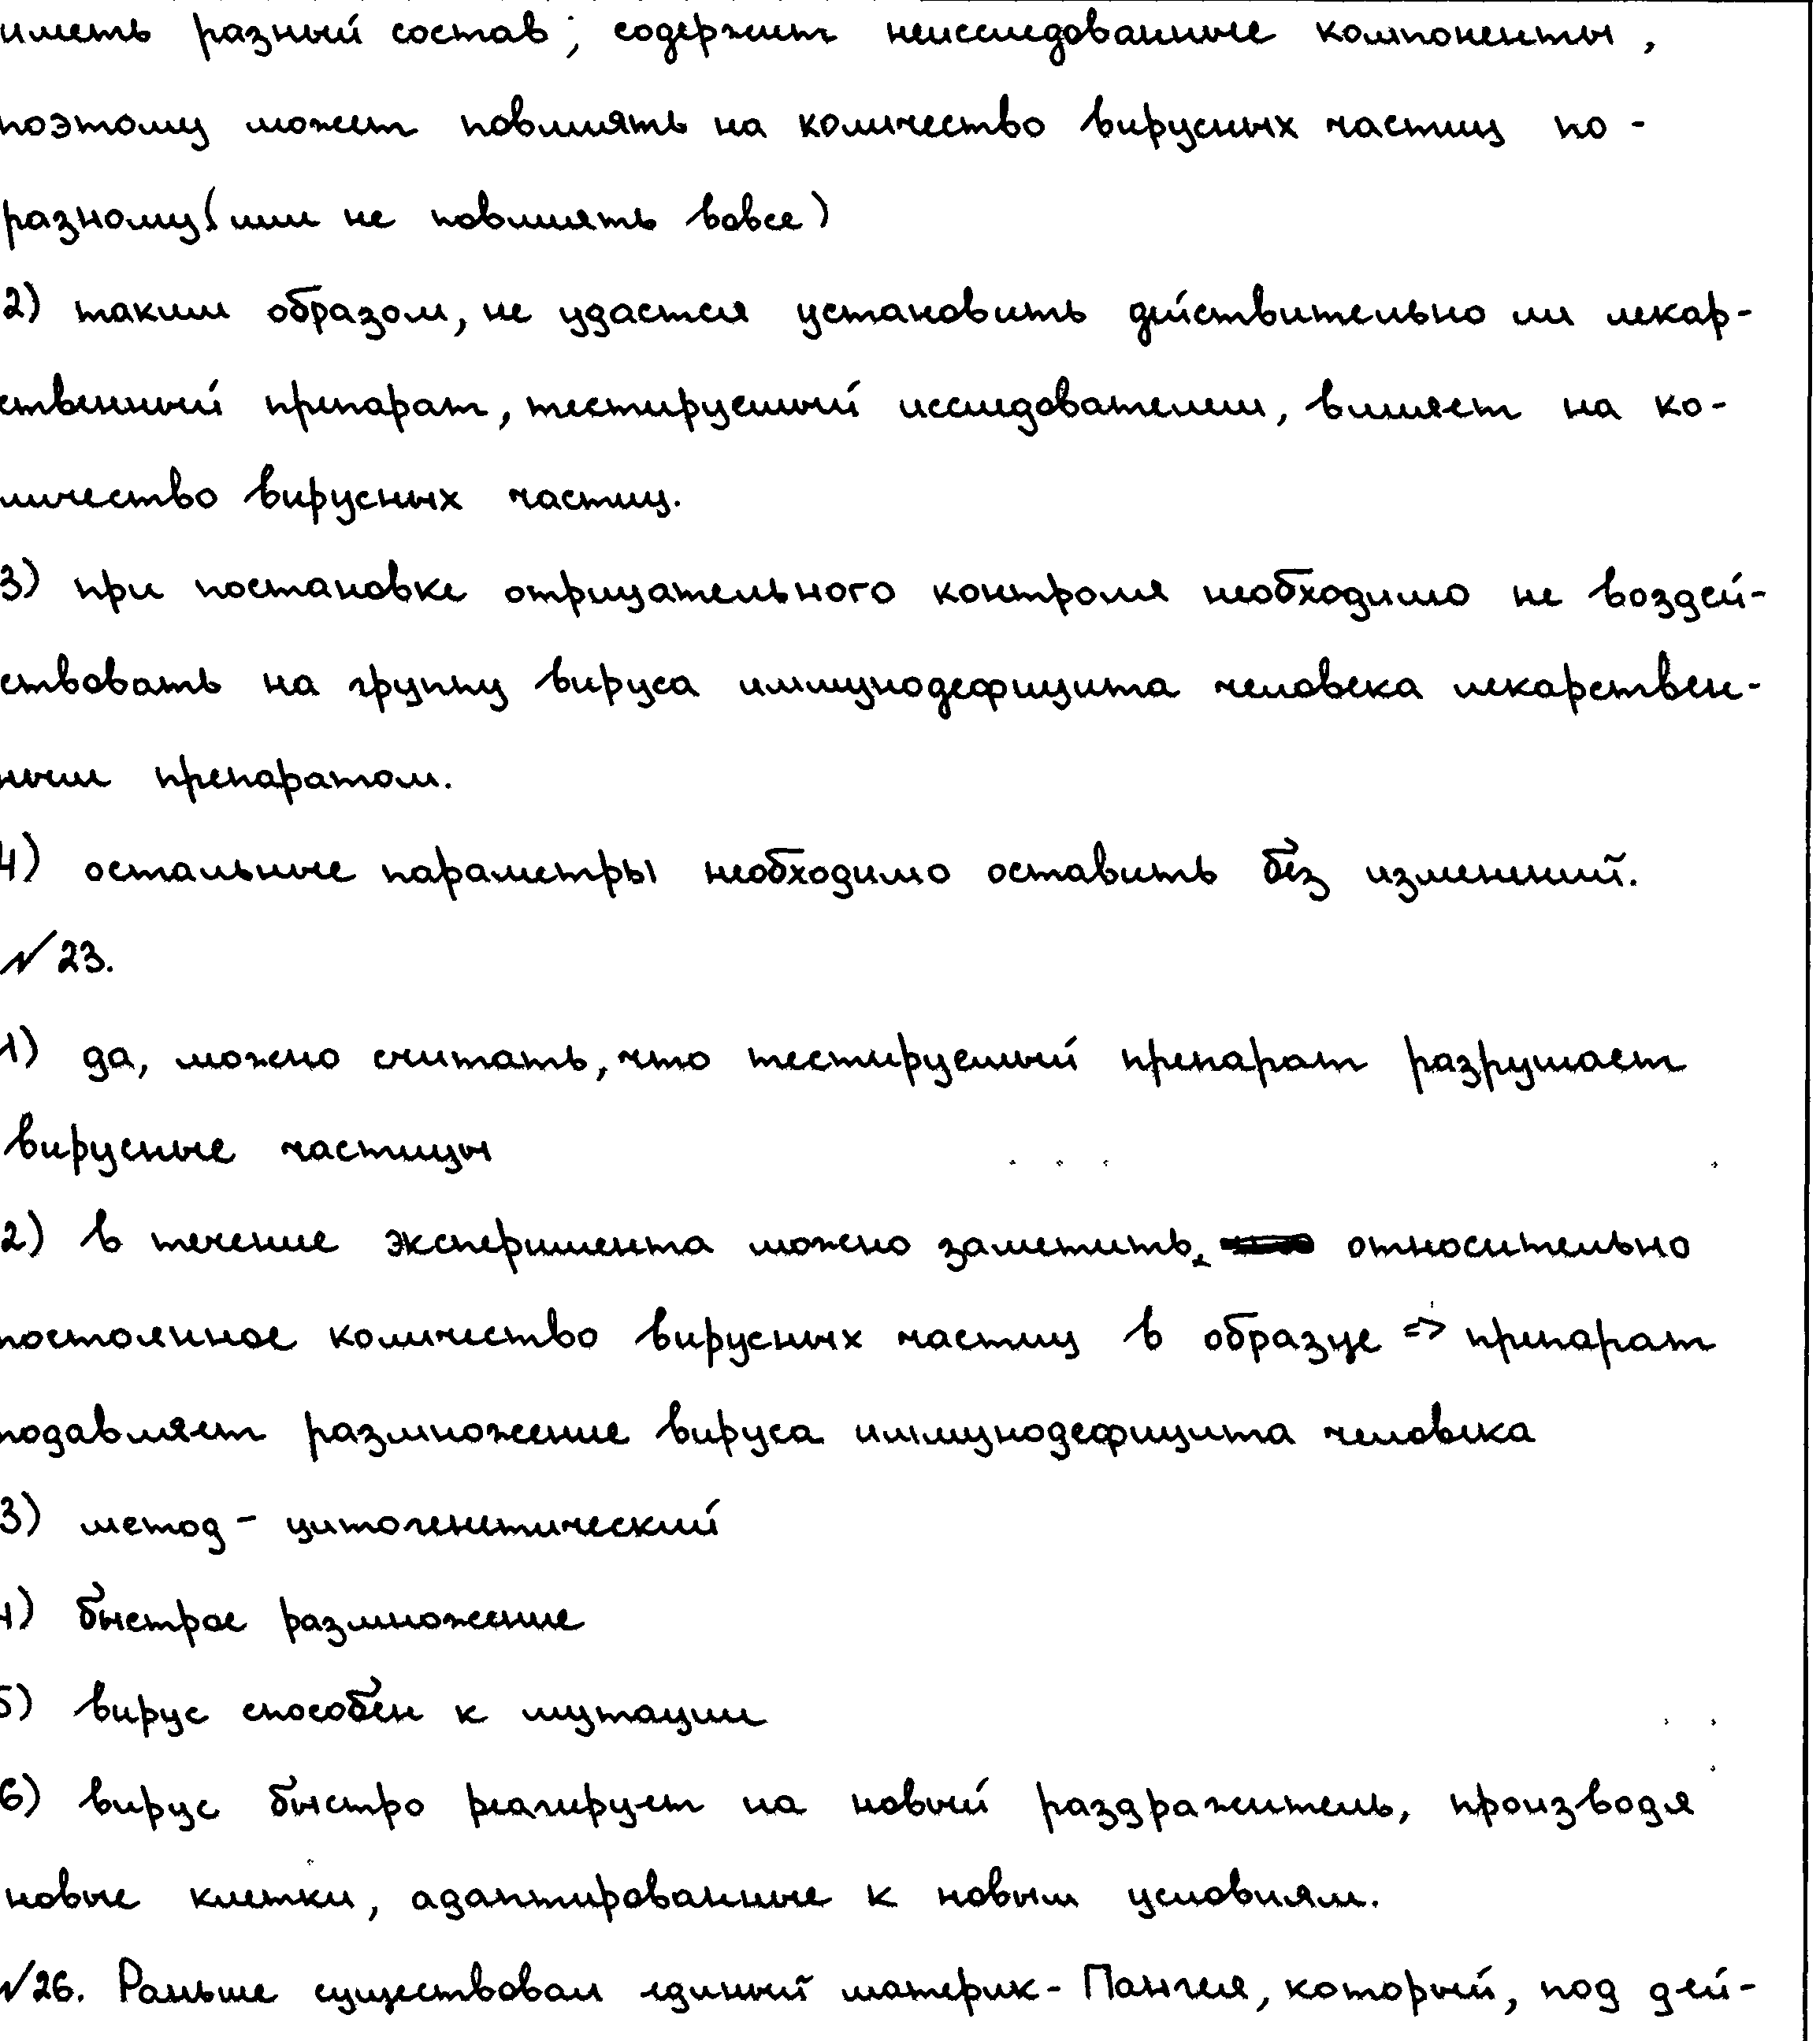 иметь разный состав; содержит неисследованные компоненты,
поэтому может повлиять на количество вирусных частиц по-
разному (или не повлиять вовсе)
2) таким образом, не удастся установить действительно ли лекар-
ственный препарат, тестируемый исследователем, влияет на ко-
личество вирусных частиц.
3) при постановке отрицательного контроля необходимо не воздей-
ствовать на группу вируса иммунодефицита человека лекарствен-
ным препаратом.
4) остальные параметры необходимо оставить без изменений.
№23.
1) да, можно считать, что тестируемый препарат разрушает
вирусные частицы
2) в течение эксперимента можно заметить относительно
постоянное количество вирусных частиц в образце => препарат
подавляет размножение вируса иммунодефицита человека
3) метод - цитогенетический
4) быстрое размножение
5) вирус способен к мутации
6) вирус быстро реагирует на новый раздражитель, производя
новые клетки, адаптированные к новым условиям.
№26. Раньше существовал единый материк - Пангея, который, под дей-